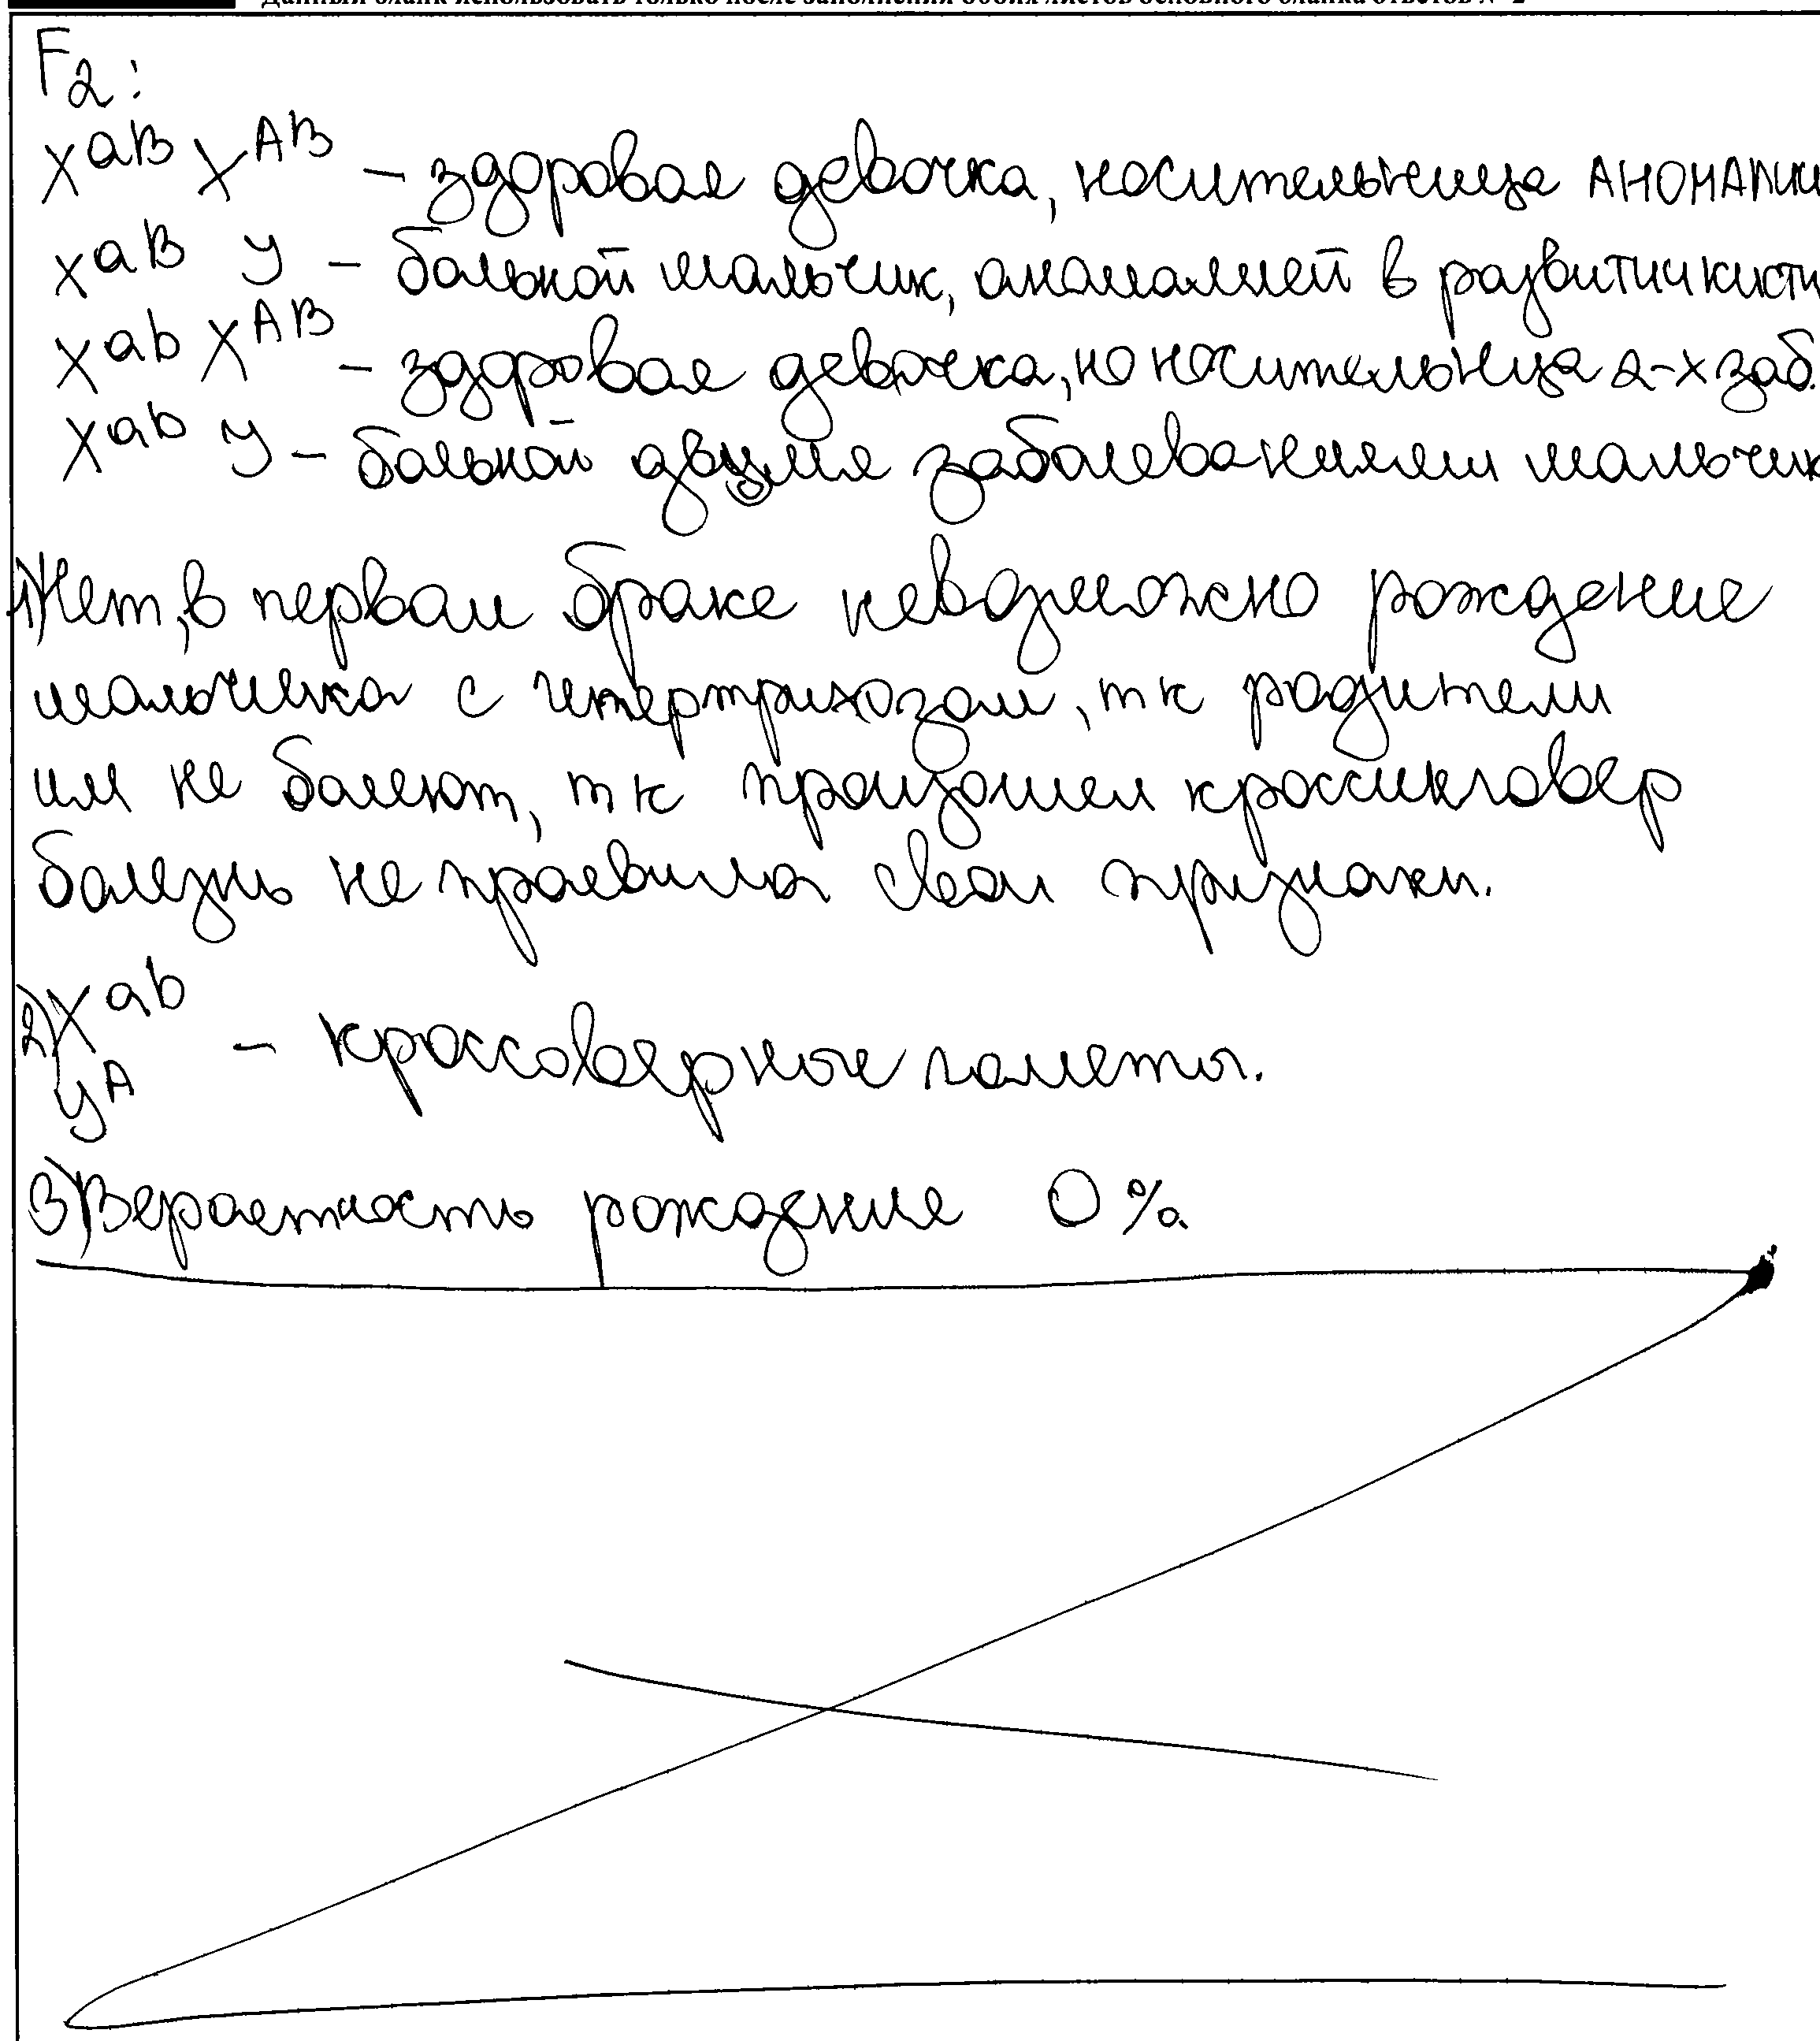 Данный бланк использовать только после заполнения обоих листов основного бланка ответов № 2
F2:
X^aB X^AB – здоровая девочка, носительница аномалии
X^aB У – больной мальчик, аномалией в развитии кисти
X^ab X^AB – здоровая девочка, но носительница 2-х заб.
X^ab У – больной двумя заболеваниями мальчик
1) Нет, в первом браке невозможно рождение
мальчика с гипертрихозом, тк родители
им не болеют, тк произошел кроссинговер
болезнь не проявила свои признаки.
2) X^ab
У^A – кроссоверные гаметы.
3) Вероятность рождение 0 %